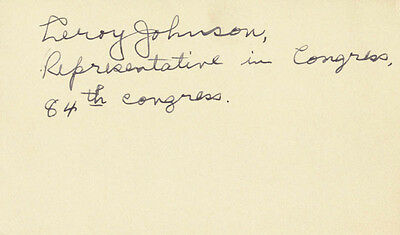 Leroy Johnson,
Representative in Congress,
84th congress.